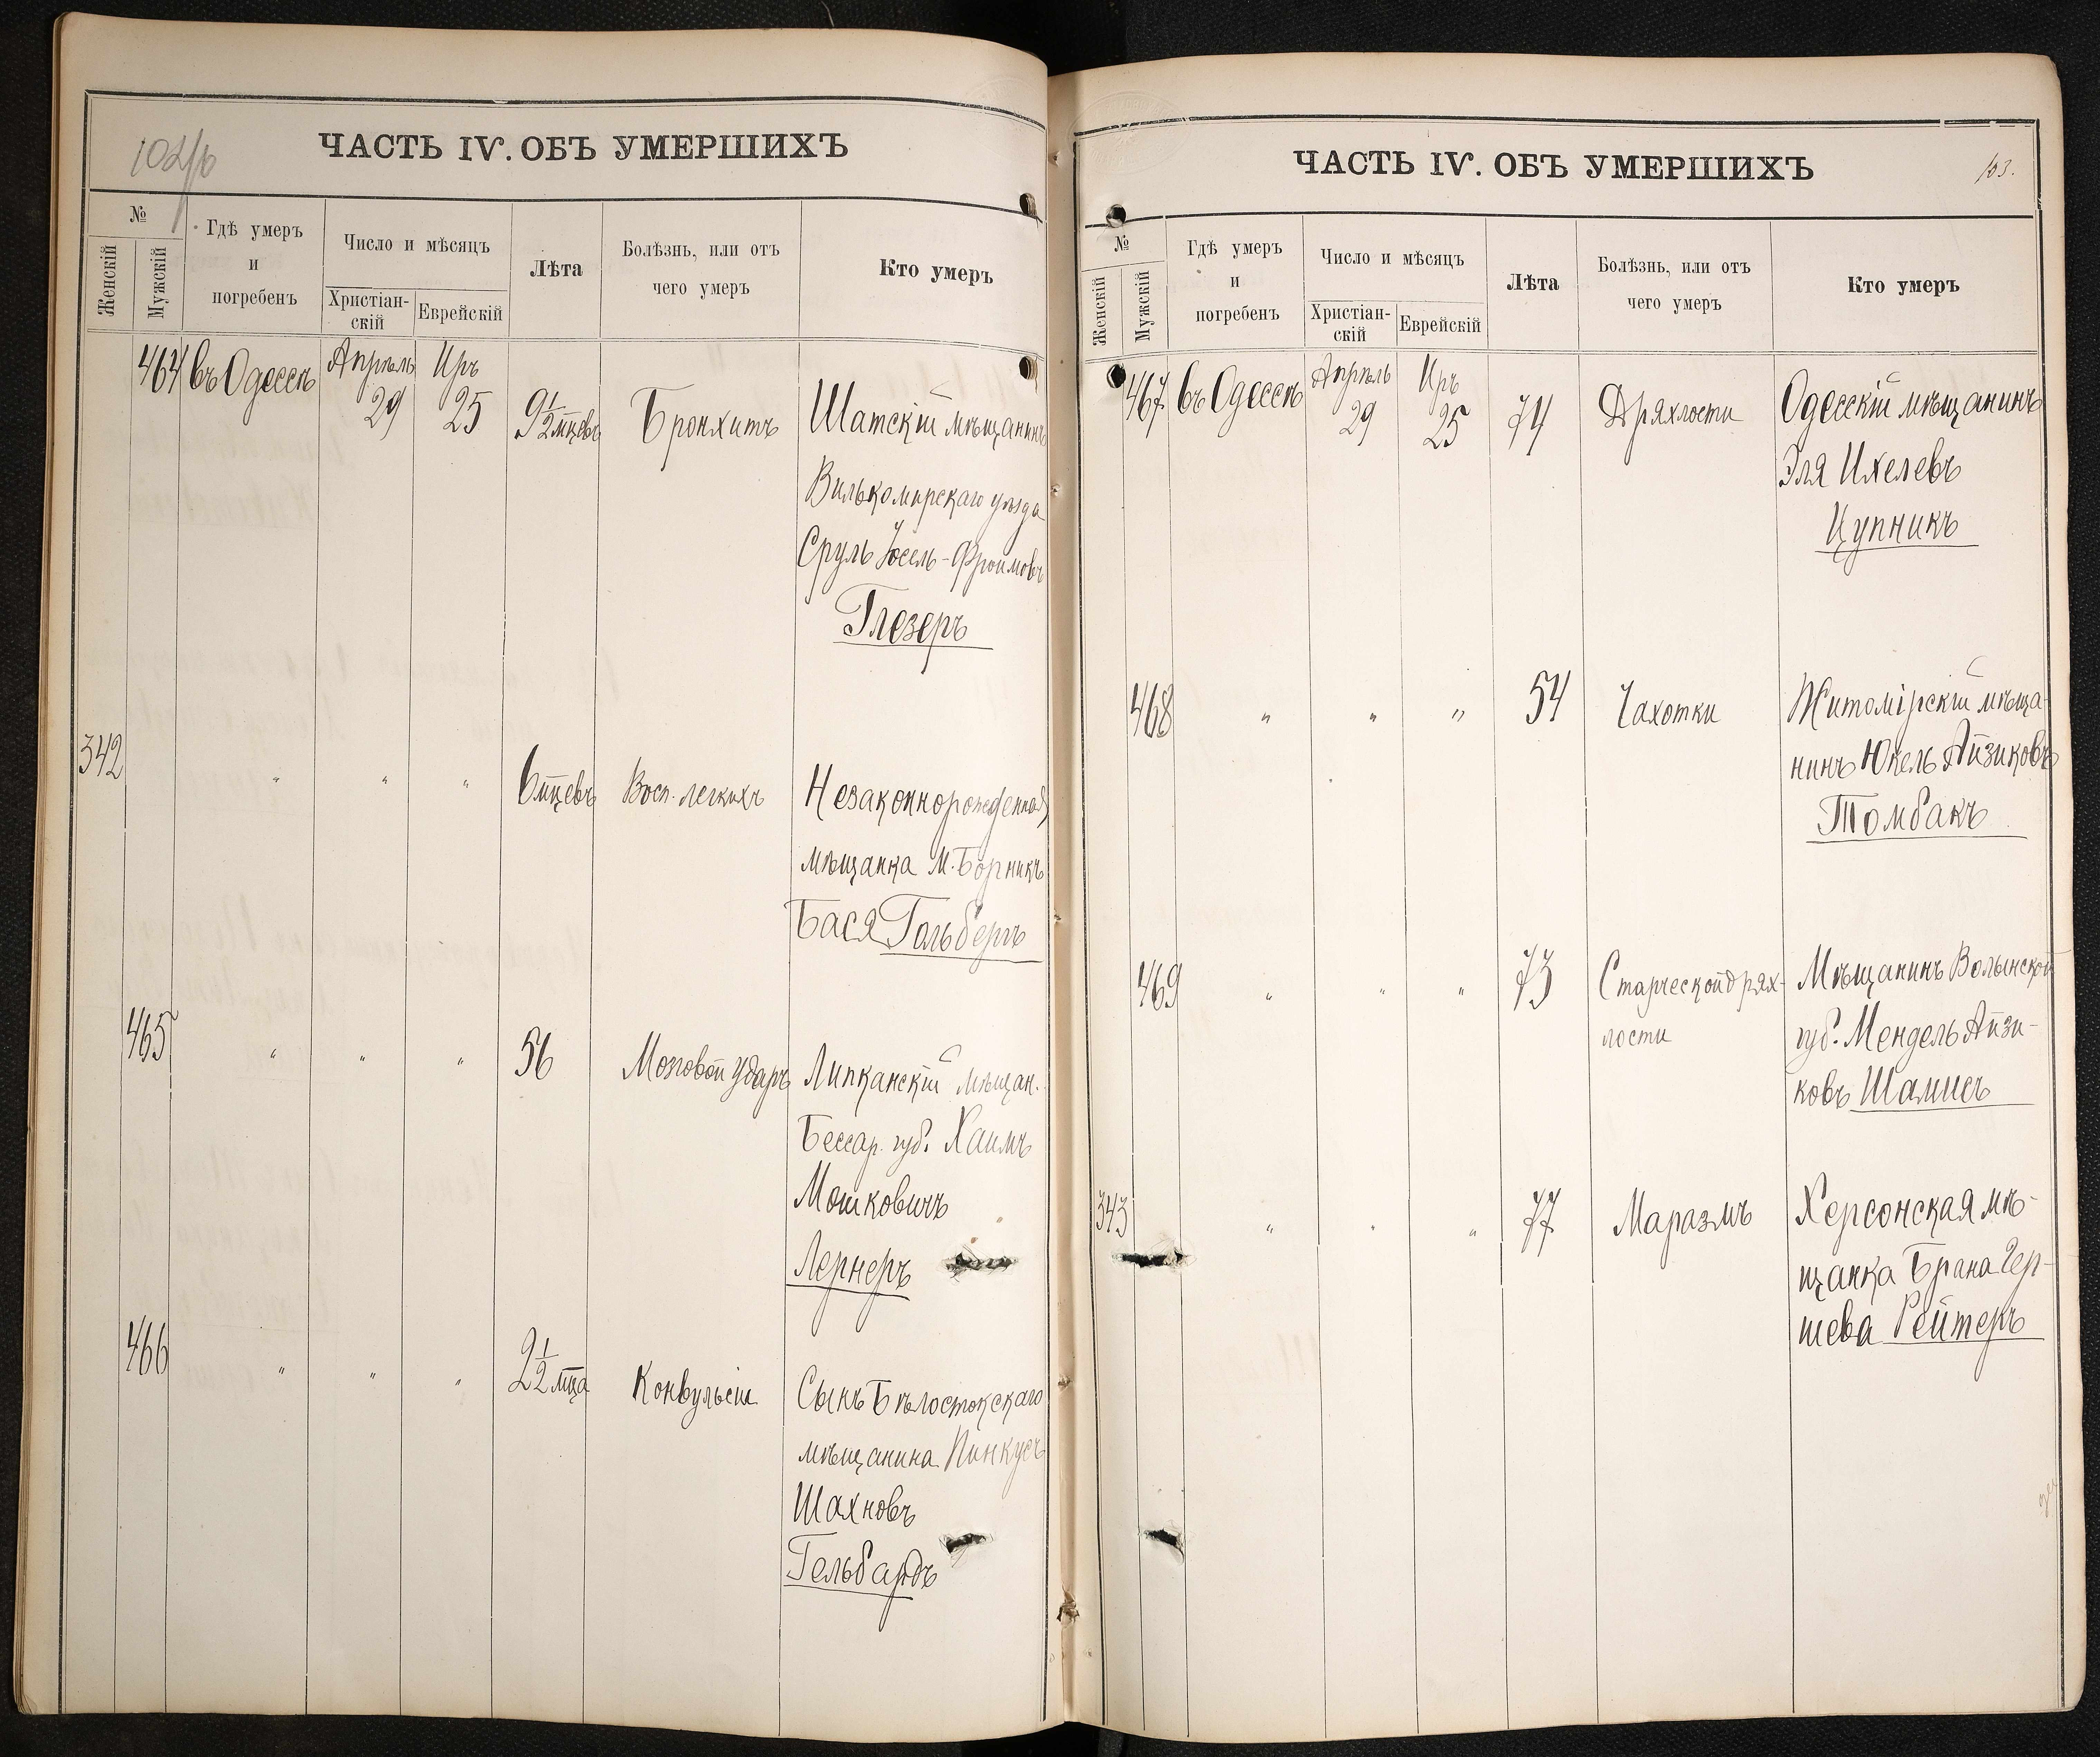 102/б
ЧАСТЬ IV. ОБЪ УМЕРШИХЪ
№
Женскій
Мужскій
Гдѣ умеръ
и
погребенъ
Число и мѣсяцъ
Христіан-
скій
Еврейскій
Лѣта
Болѣзнь, или отъ
чего умеръ
Кто умеръ
464 въ Одессѣ Апрѣль 29 Иръ 25 9 1/2 мцевъ Бронхитъ Шатскій мѣщанинъ
Вилькомирскаго уѣзда
Сруль Іосель-Фроимовъ
Глезеръ
342 " " " 6 мцевъ Восп. легкихъ Незаконнорожденная
мѣщанка М. Борникъ
Бася Гольбергъ
465 " " " 56 Мозговой ударъ Липканскій мѣщан.
Бессар. губ. Хаимъ
Мошковичъ
Лернеръ
466 " " " 2 1/2 мца Конвульсіи Сынъ Бѣлостокскаго
мѣщанина Пинкусъ
Шахновъ
Гельбардъ
ЧАСТЬ IV. ОБЪ УМЕРШИХЪ
103.
№
Женскій
Мужскій
Гдѣ умеръ
и
погребенъ
Число и мѣсяцъ
Христіан-
скій
Еврейскій
Лѣта
Болѣзнь, или отъ
чего умеръ
Кто умеръ
467 въ Одессѣ Апрѣль 29 Иръ 25 74 Дряхлости Одесскій мѣщанинъ
Эля Ихелевъ
Цупникъ
468 " " " 54 Чахотки Житомірскій мѣща-
нинъ Юкель Айзиковъ
Томбакъ
469 " " " 73 Старческой дрях- Мѣщанинъ Волынской
лости губ. Мендель Айзи-
ковъ Шамисъ
343 " " " 77 Маразмъ Херсонская мѣ-
щанка Брана Гер-
шева Рейтеръ